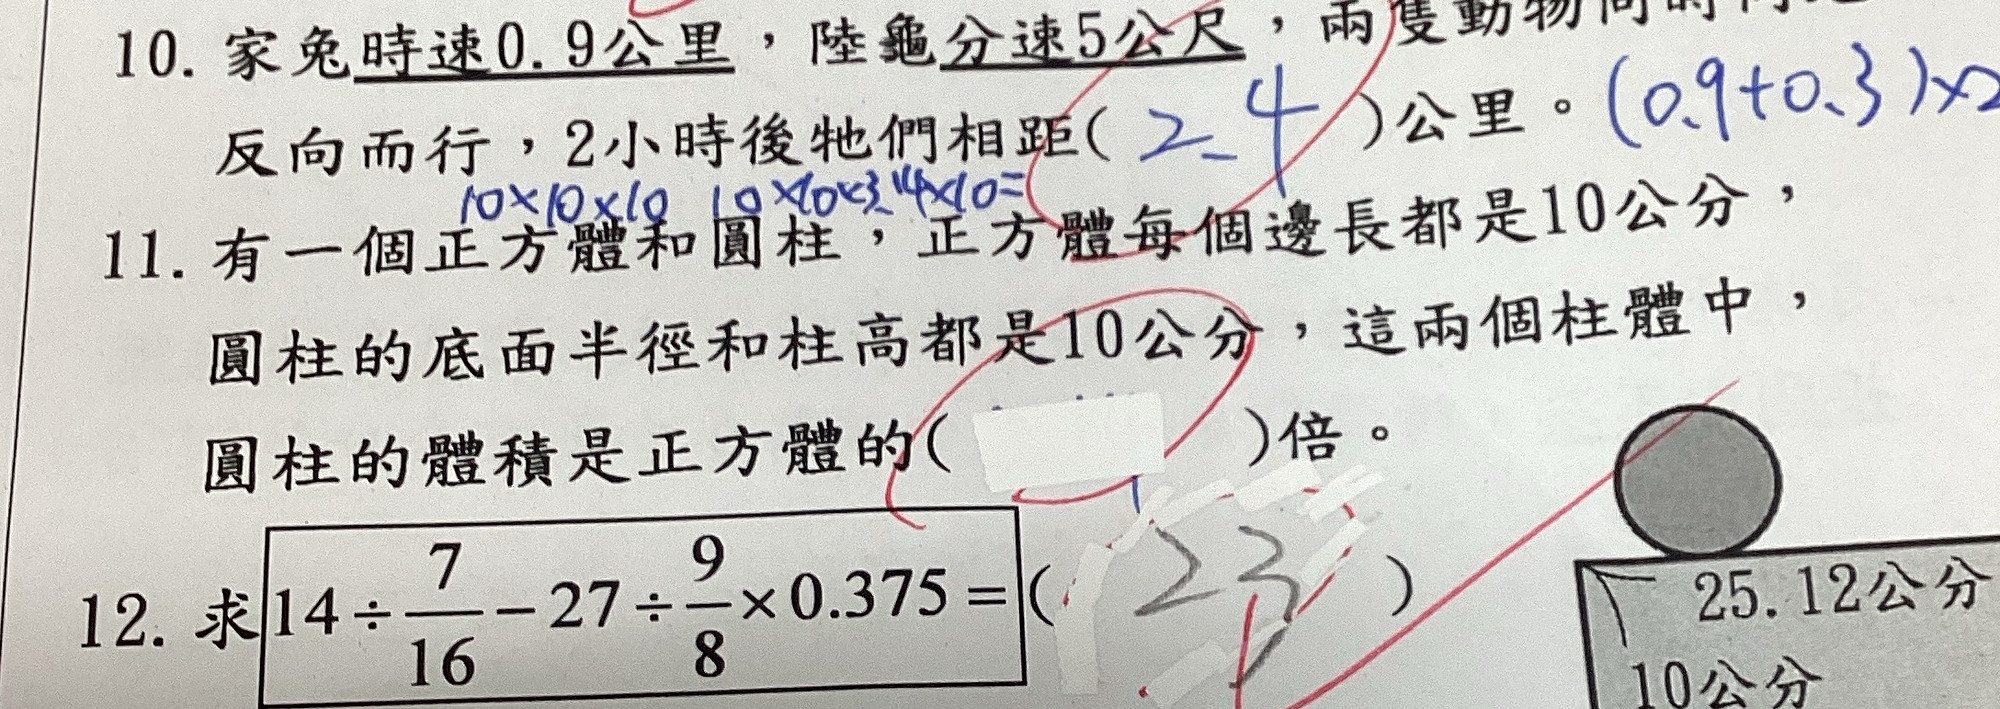 10. 家兔時速0.9公里，陸龜分速5公尺，兩隻動物同時
反向而行，2小時後牠們相距( 2.4 )公里。(0.9+0.3)×2
10×10×10 10×10×3.14×10=
11. 有一個正方體和圓柱，正方體每個邊長都是10公分，
圓柱的底面半徑和柱高都是10公分，這兩個柱體中，
圓柱的體積是正方體的( )倍。
12. 求 14÷7/16−27÷9/8×0.375=( 23 )
25.12公分
10公分